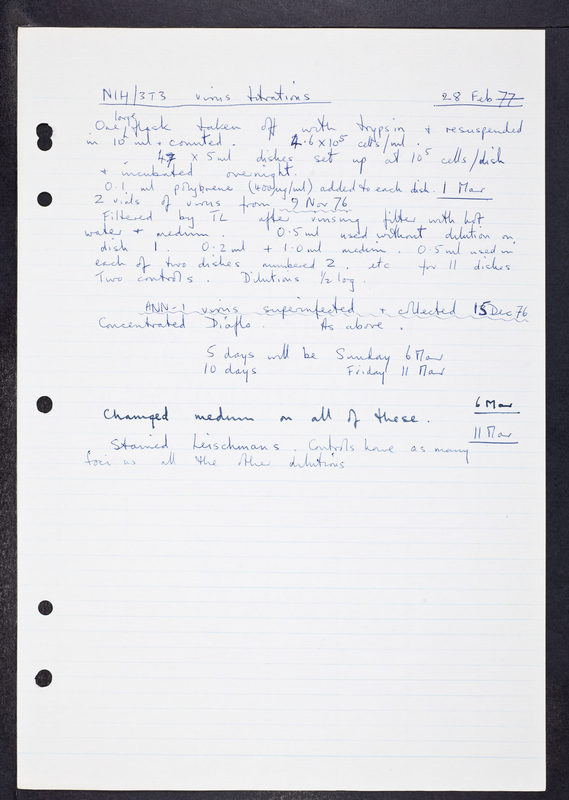 NIH/3T3 virus titrations 28 Feb 77
One large flask taken off with trypsin & resuspended
in 10 ml & counted. 4.6 x 10⁵ cells/ml.
47 x 5 ml dishes set up at 10⁵ cells/dish
& incubated overnight.
0.1 ml polybrene (400 µg/ml) added to each dish. 1 Mar
2 vials of virus from 9 Nov 76
Filtered by TL after rinsing filter with hot
water & medium. 0.5 ml used without dilution on
dish 1. 0.2 ml + 1.0 ml medium. 0.5 ml used in
each of two dishes numbered 2. etc for 11 dishes
Two controls. Dilutions ½ log.
ANN-1 virus superinfected & collected 15 Dec 76
Concentrated Diaflo. As above.
5 days will be Sunday 6 Mar
10 days Friday 11 Mar
6 Mar
Changed medium on all of these.
11 Mar
Stained Leischmans. Controls have as many
foci as all the other dilutions